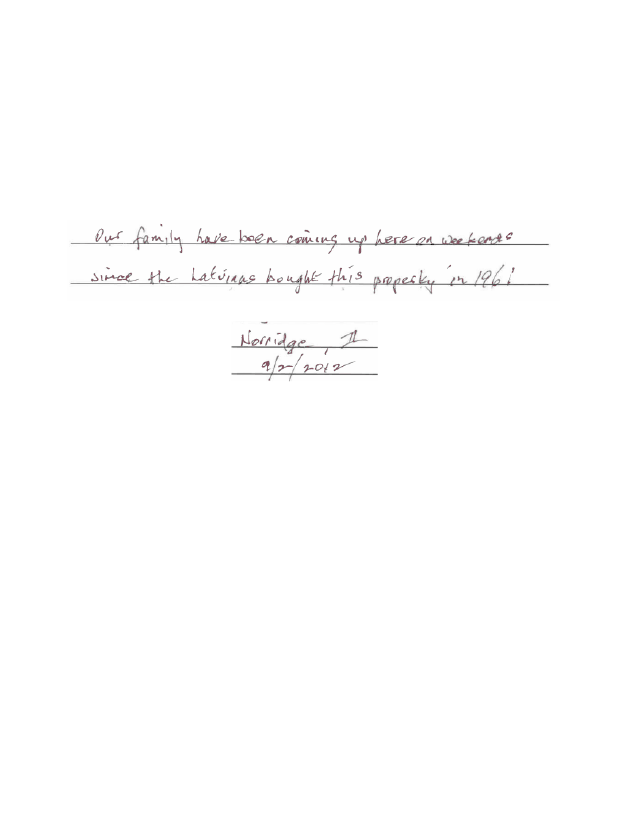 Our family have been coming up here on weekends
since the Latvians bought this property in 196!
Norridge, Il
9/2/2012